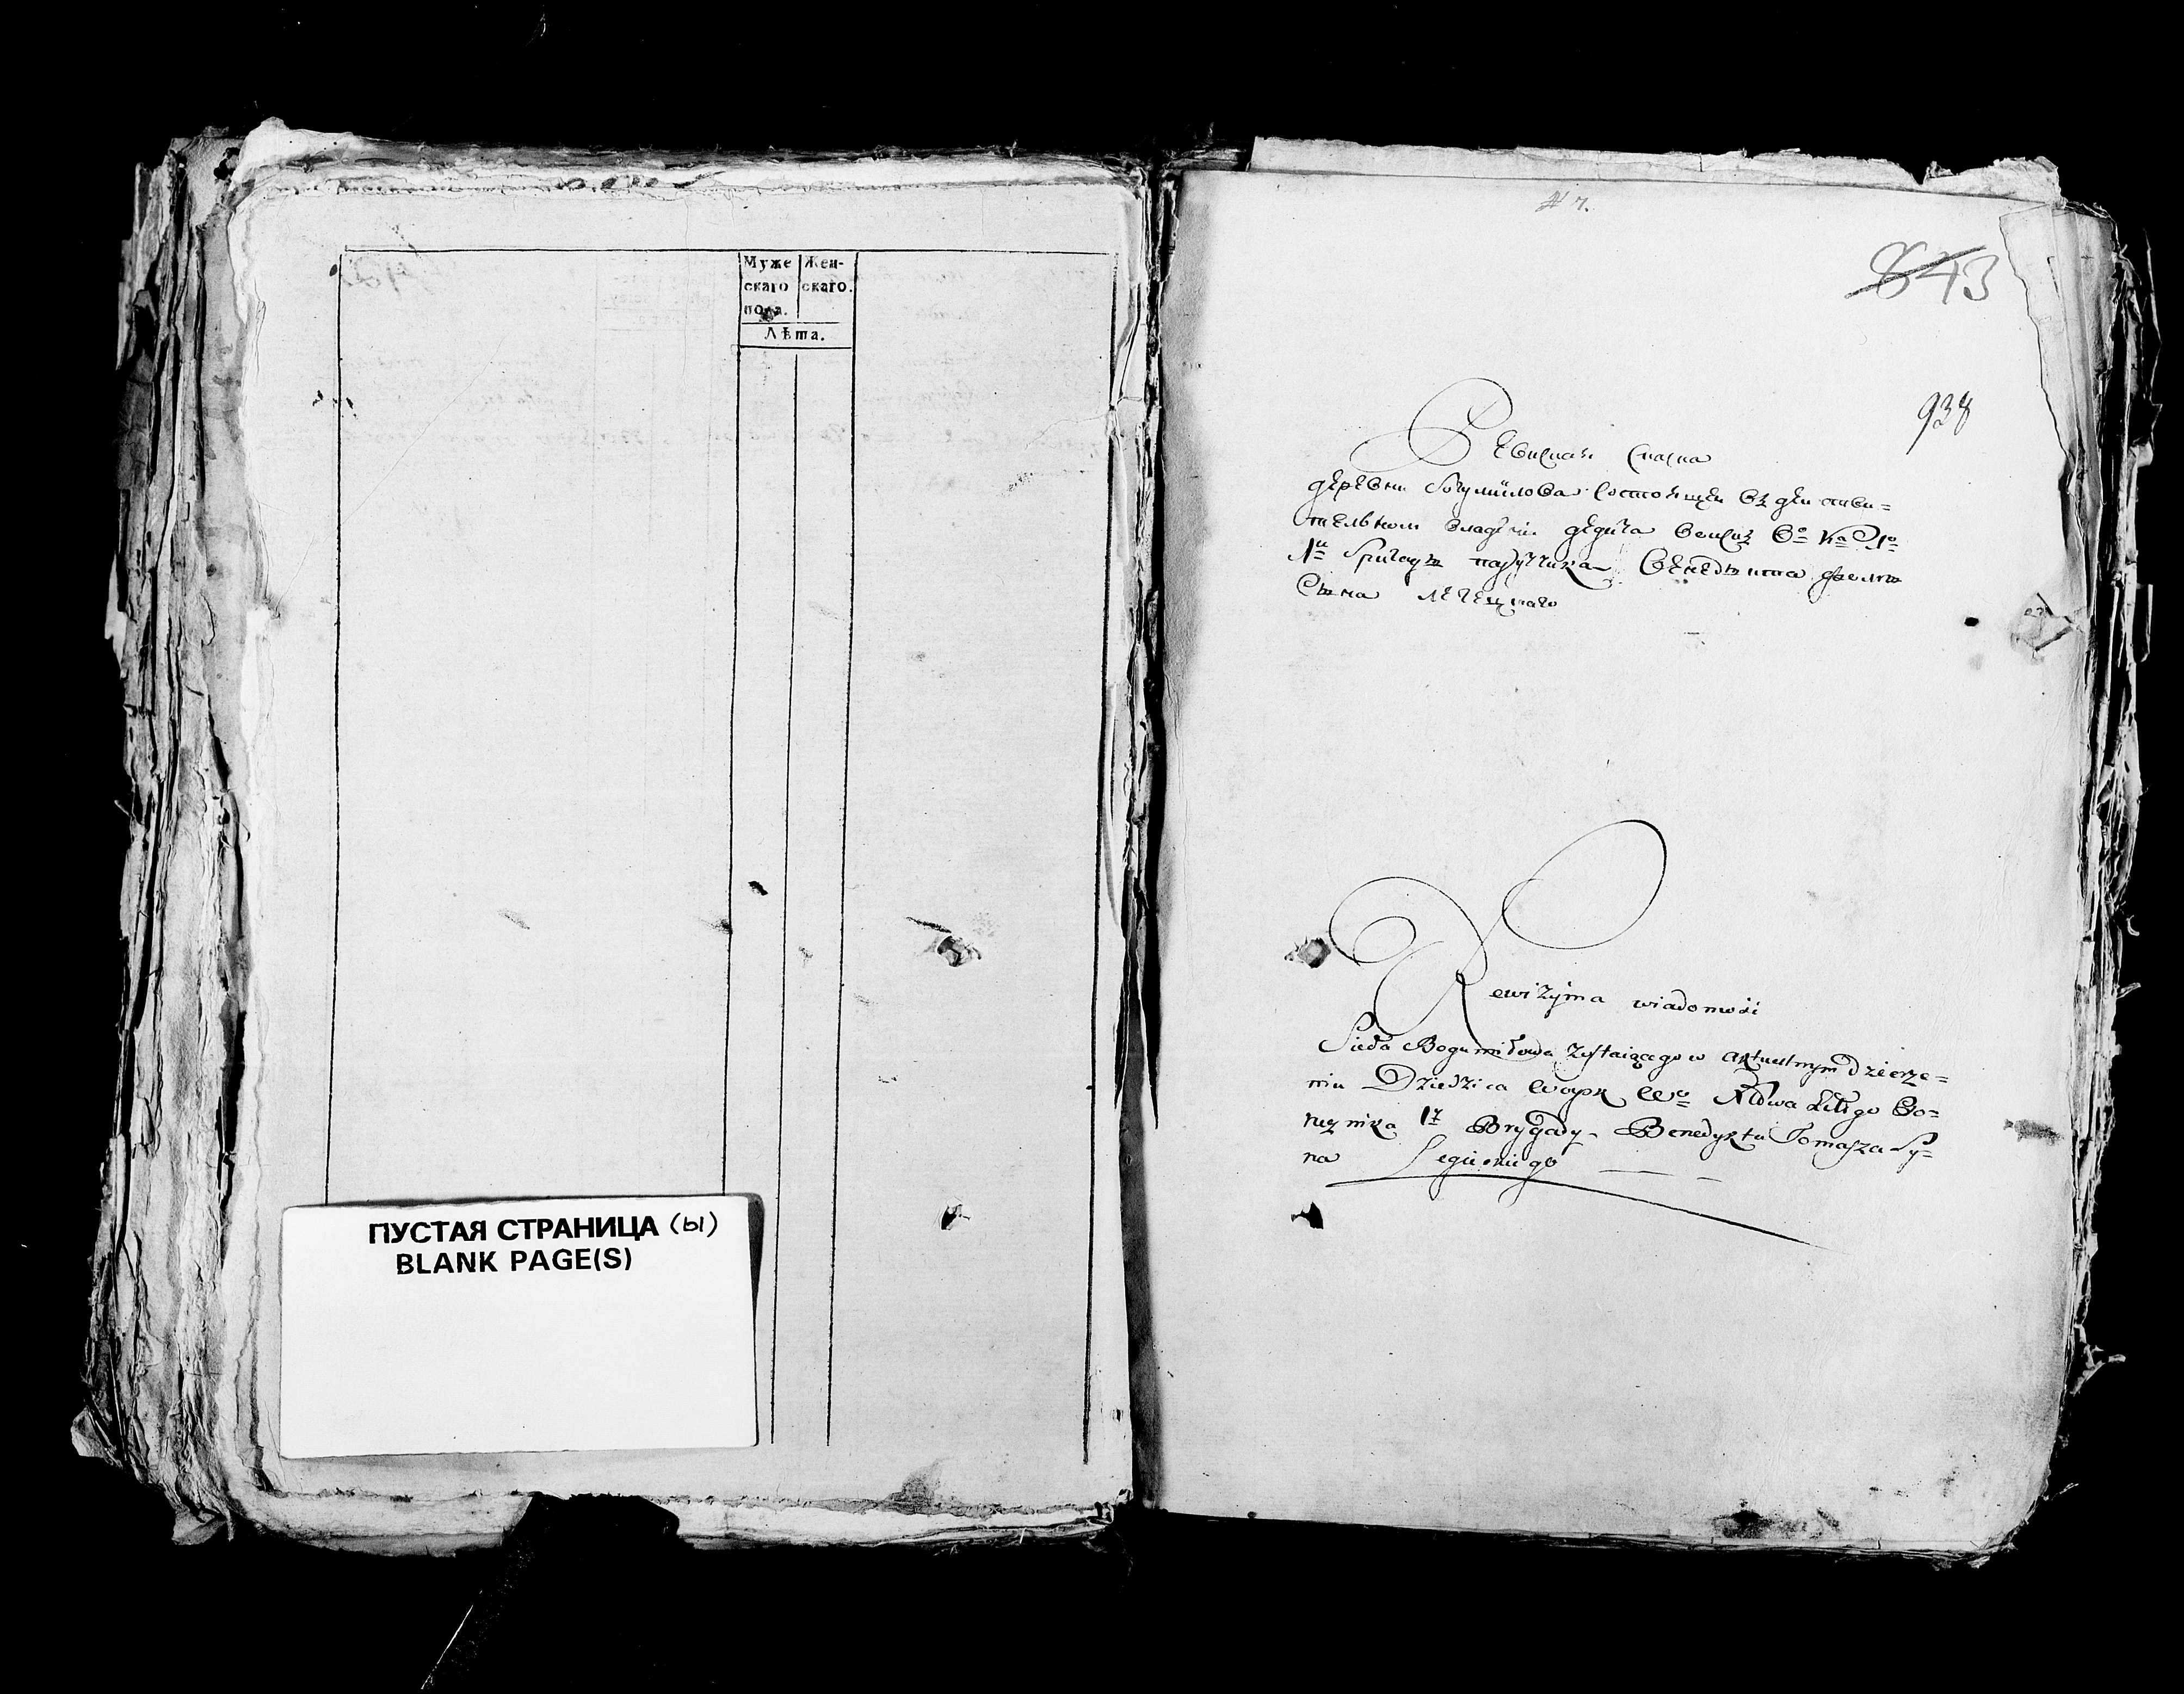 Муже Жен-
скаго скаго.
пола.
Лѣта.
ПУСТАЯ СТРАНИЦА (ы)
BLANK PAGE(S)
№ 7.
843
938
Ревизная сказка
деревни Богумилова состоящей въ дѣйстви=
тельном владѣнии дедича войскъ
бригады поручика Бенедыкта
Сына Легецкаго
Rewizyina wiadomość
Sioła Bogumiłowa zostaiącego w aktualnym dzierże=
niu Dziedzica woysk Wo Xtdwa Littgo Po=
rucznika 1y Brygady Benedykta Tomasza Sy=
na Legieckiego